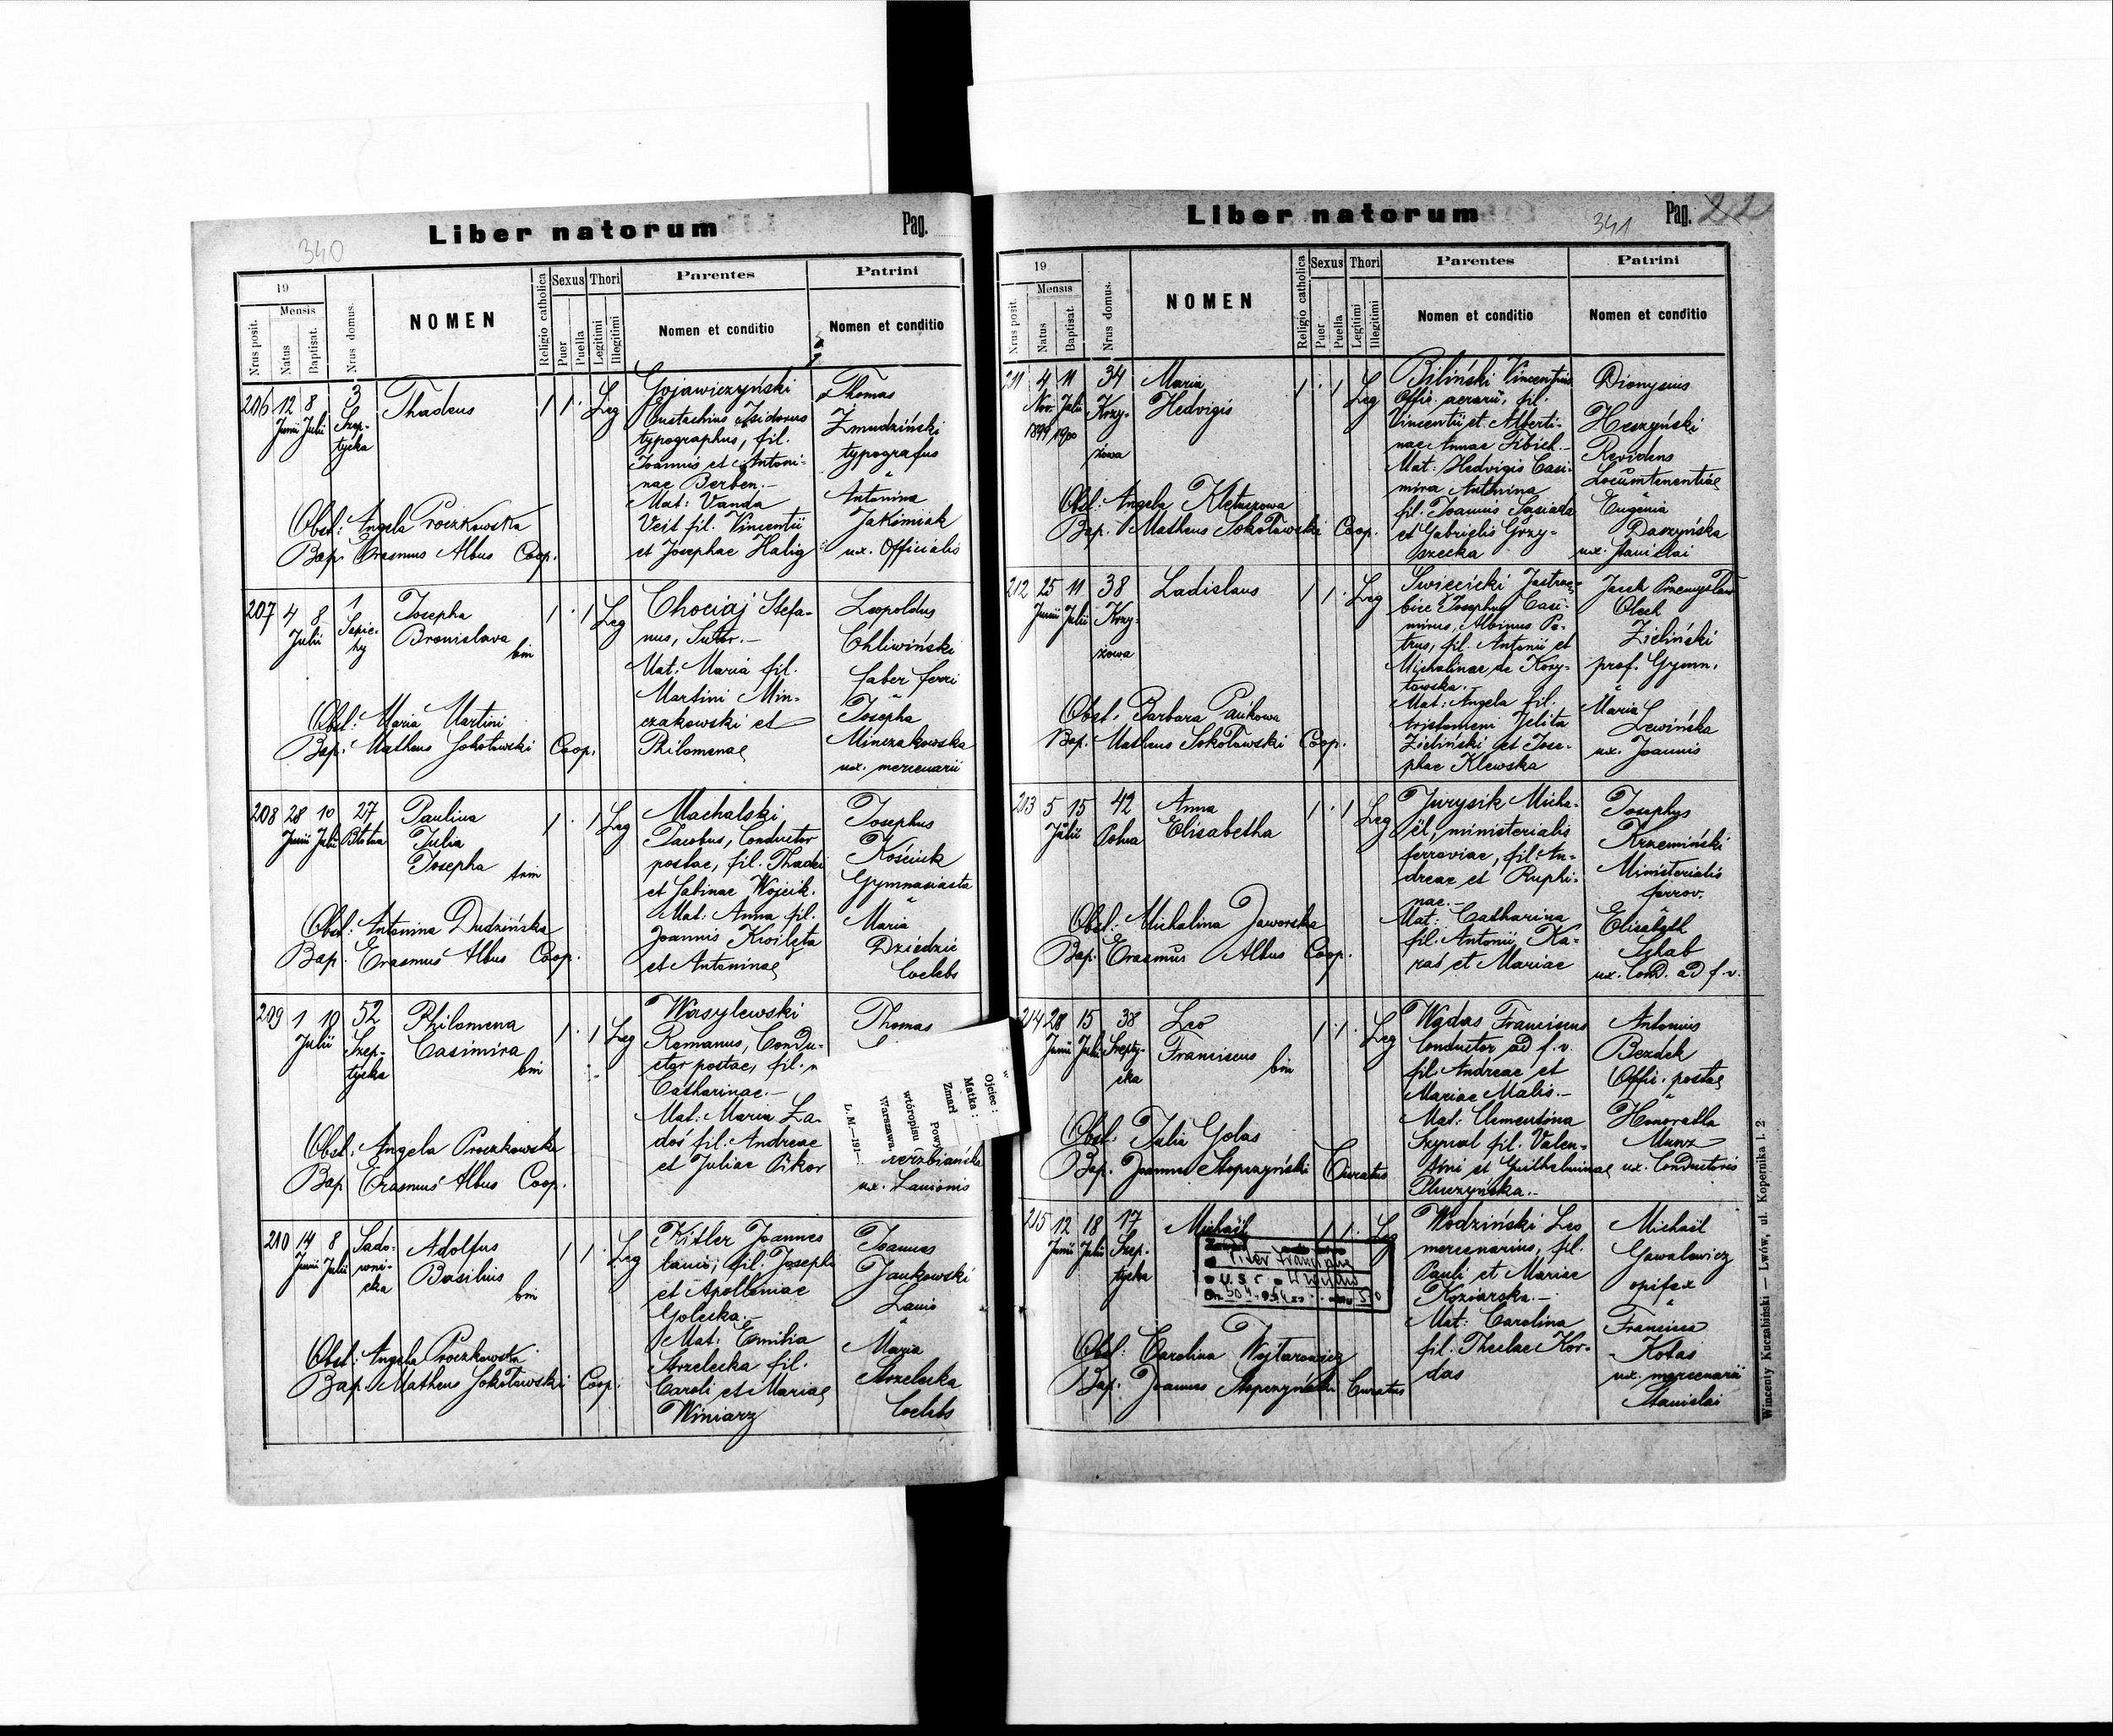 340
Liber natorum
Pag.
19
Mensis
Nrus posit.
Natus
Baptisat.
Nrus domus.
NOMEN
Religio catholica
Sexus
Puer
Puella
Thori
Legitimi
Illegitimi
Parentes
Nomen et conditio
Patrini
Nomen et conditio
206 12 Junii 8 Julii
3
Szep-
tycka
Thadeus
1 1 · Leg
Gojawiczyński
Eustachius Isidorus
typographus, fil.
Joannis et Antoni-
nae Berben.-
Mat: Vanda
Veit fil. Vincentii
et Josephae Halig
Thomas
Żmudziński
typografus
Antonina
Jakimiak
ux. Officialis
Obst: Angela Proczkowska
Bap. Erasmus Albus Coop.
207 4 8 Julii
1
Sapie-
hy
Josepha
Bronislava
bin
1 · 1 Leg
Chociaj Stefa-
nus, Sutor.-
Mat: Maria fil.
Martini Min-
czakowski et
Philomenae
Leopoldus
Chliwiński
faber ferri
Josepha
Minczakowska
ux. mercenarii
Obst: Maria Martini
Bap: Matheus Sokołowski Coop.
208 28 Junii 10 Julii
27
Paulina
Julia
Josepha
trin
1 · 1 Leg
Machalski
Jacobus, Conductor
postae, fil. Thadei
et Sabinae Wojcik.
Mat: Anna fil.
Joannis Kwileta
et Antoninae
Josephus
Kościuk
Gymnasiasta
Maria
Dziedzic
Coelebs
Obst: Antonina Dudzińska
Bap. Erasmus Albus Coop.
209 1 10 Julii
52
Szep-
tycka
Philomena
Casimira
bin
1 · 1 Leg
Wasylewski
Romanus, Condu-
ctor postae, fil.
Catharinae.-
Mat: Maria Za-
dos fil. Andreae
et Juliae Pikor
Thomas
ux. Lanionis
Ojciec:
Matka:
Zmarł
Powy
wtóropisu
Warszawa.
L. M.—191—
Obst. Angela Proczkowska
Bap Erasmus Albus Coop.
210 14 Junii 8 Julii
Sado-
wni-
cka
Adolfus
Basilius
bin
1 1 · Leg
Kitler Joannes
lanio; fil. Josephi
et Apolloniae
Golecka.-
Mat: Emilia
Strzelecka fil.
Caroli et Mariae
Winiarz
Joannes
Jankowski
Lanio
Maria
Strzelecka
Coelebs
Obst: Angela Proczkowska
Bap. Matheus Sokołowski Coop.
Liber natorum
341
Pag.
19
Mensis
Nrus posit.
Natus
Baptisat.
Nrus domus.
NOMEN
Religio catholica
Sexus
Puer
Puella
Thori
Legitimi
Illegitimi
Parentes
Nomen et conditio
Patrini
Nomen et conditio
211 4 Nov. 1899 11 Julii 1900
34
Krzy-
żowa
Maria
Hedvigis
1 · 1 Leg
Biliński Vincentius
Offic. aerarii, fil.
Vincentii et Alberti-
nae Annae Fibich.-
Mat: Hedvigis Casi-
mira Antonina
fil. Joannis Sasiada
et Gabrielis Grzy-
szecka
Dionysius
Heszyński
Revidens
Locumtenentiae
Eugenia
Daszyńska
ux. Stanislai
Obst: Angela Kletuszowa
Bap. Matheus Sokołowski Coop.
212 25 Junii 11 Julii
38
Krzy-
żowa
Ladislaus
1 1 · Leg
Swiecicki Jastrzę-
biec Josephus Casi-
mirus, Albinus Pe-
trus, fil. Antonii et
Michalinae de Kory-
towska.-
Mat: Angela fil.
Aristomeni Jelita
Zieliński et Jose-
phae Klewska
Jacek Przemysław
Olech
Zieliński
prof. Gymn.
Maria
Lewińska
ux. Joannis
Obst. Barbara Paikowa
Bap. Matheus Sokołowski Coop.
213 5 15 Julii
42
Polna
Anna
Elisabetha
1 · 1 Leg
Jurysik Micha-
ël, ministerialis
ferroviae, fil. An-
dreae et Ruphi-
nae.-
Mat: Catharina
fil. Antonii Ka-
raś et Mariae
Josephus
Krzemiński
Ministerialis
ferrov.
Elisabeth
Schab
ux. Cond. ad f. v.
Obst: Michalina Jaworska
Bap. Erasmus Albus Coop.
214 28 Junii 15 Julii
38
Szepty-
cka
Leo
Franciscus
bin
1 1 · Leg
Wądas Franciscus
Conductor ad f. v.
fil. Andreae et
Mariae Malis.-
Mat: Clementina
Szynal fil. Valen-
tini et Guilhelminae
Pluczyńska.-
Antonius
Bezdek
Offic. postae
Honoratha
Munz
ux. Conductoris
Obst: Julia Golas
Bap. Joannes Stopczyński Curatus
215 12 Junii 18 Julii
17
Szep-
tycka
Michaël
1 1 · Leg
Wodziński Leo
mercenarius, fil.
Pauli et Mariae
Koziarska.-
Mat: Carolina
fil. Theclae Kor-
das
Michaël
Gawalewicz
opifex
Francisca
Kotas
ux. mercenarii
Stanislai
Obst: Carolina Wojtarowicz
Bap. Joannes Stopczyński Curatus
Wincenty Kuczabiński — Lwów, ul. Kopernika l. 2